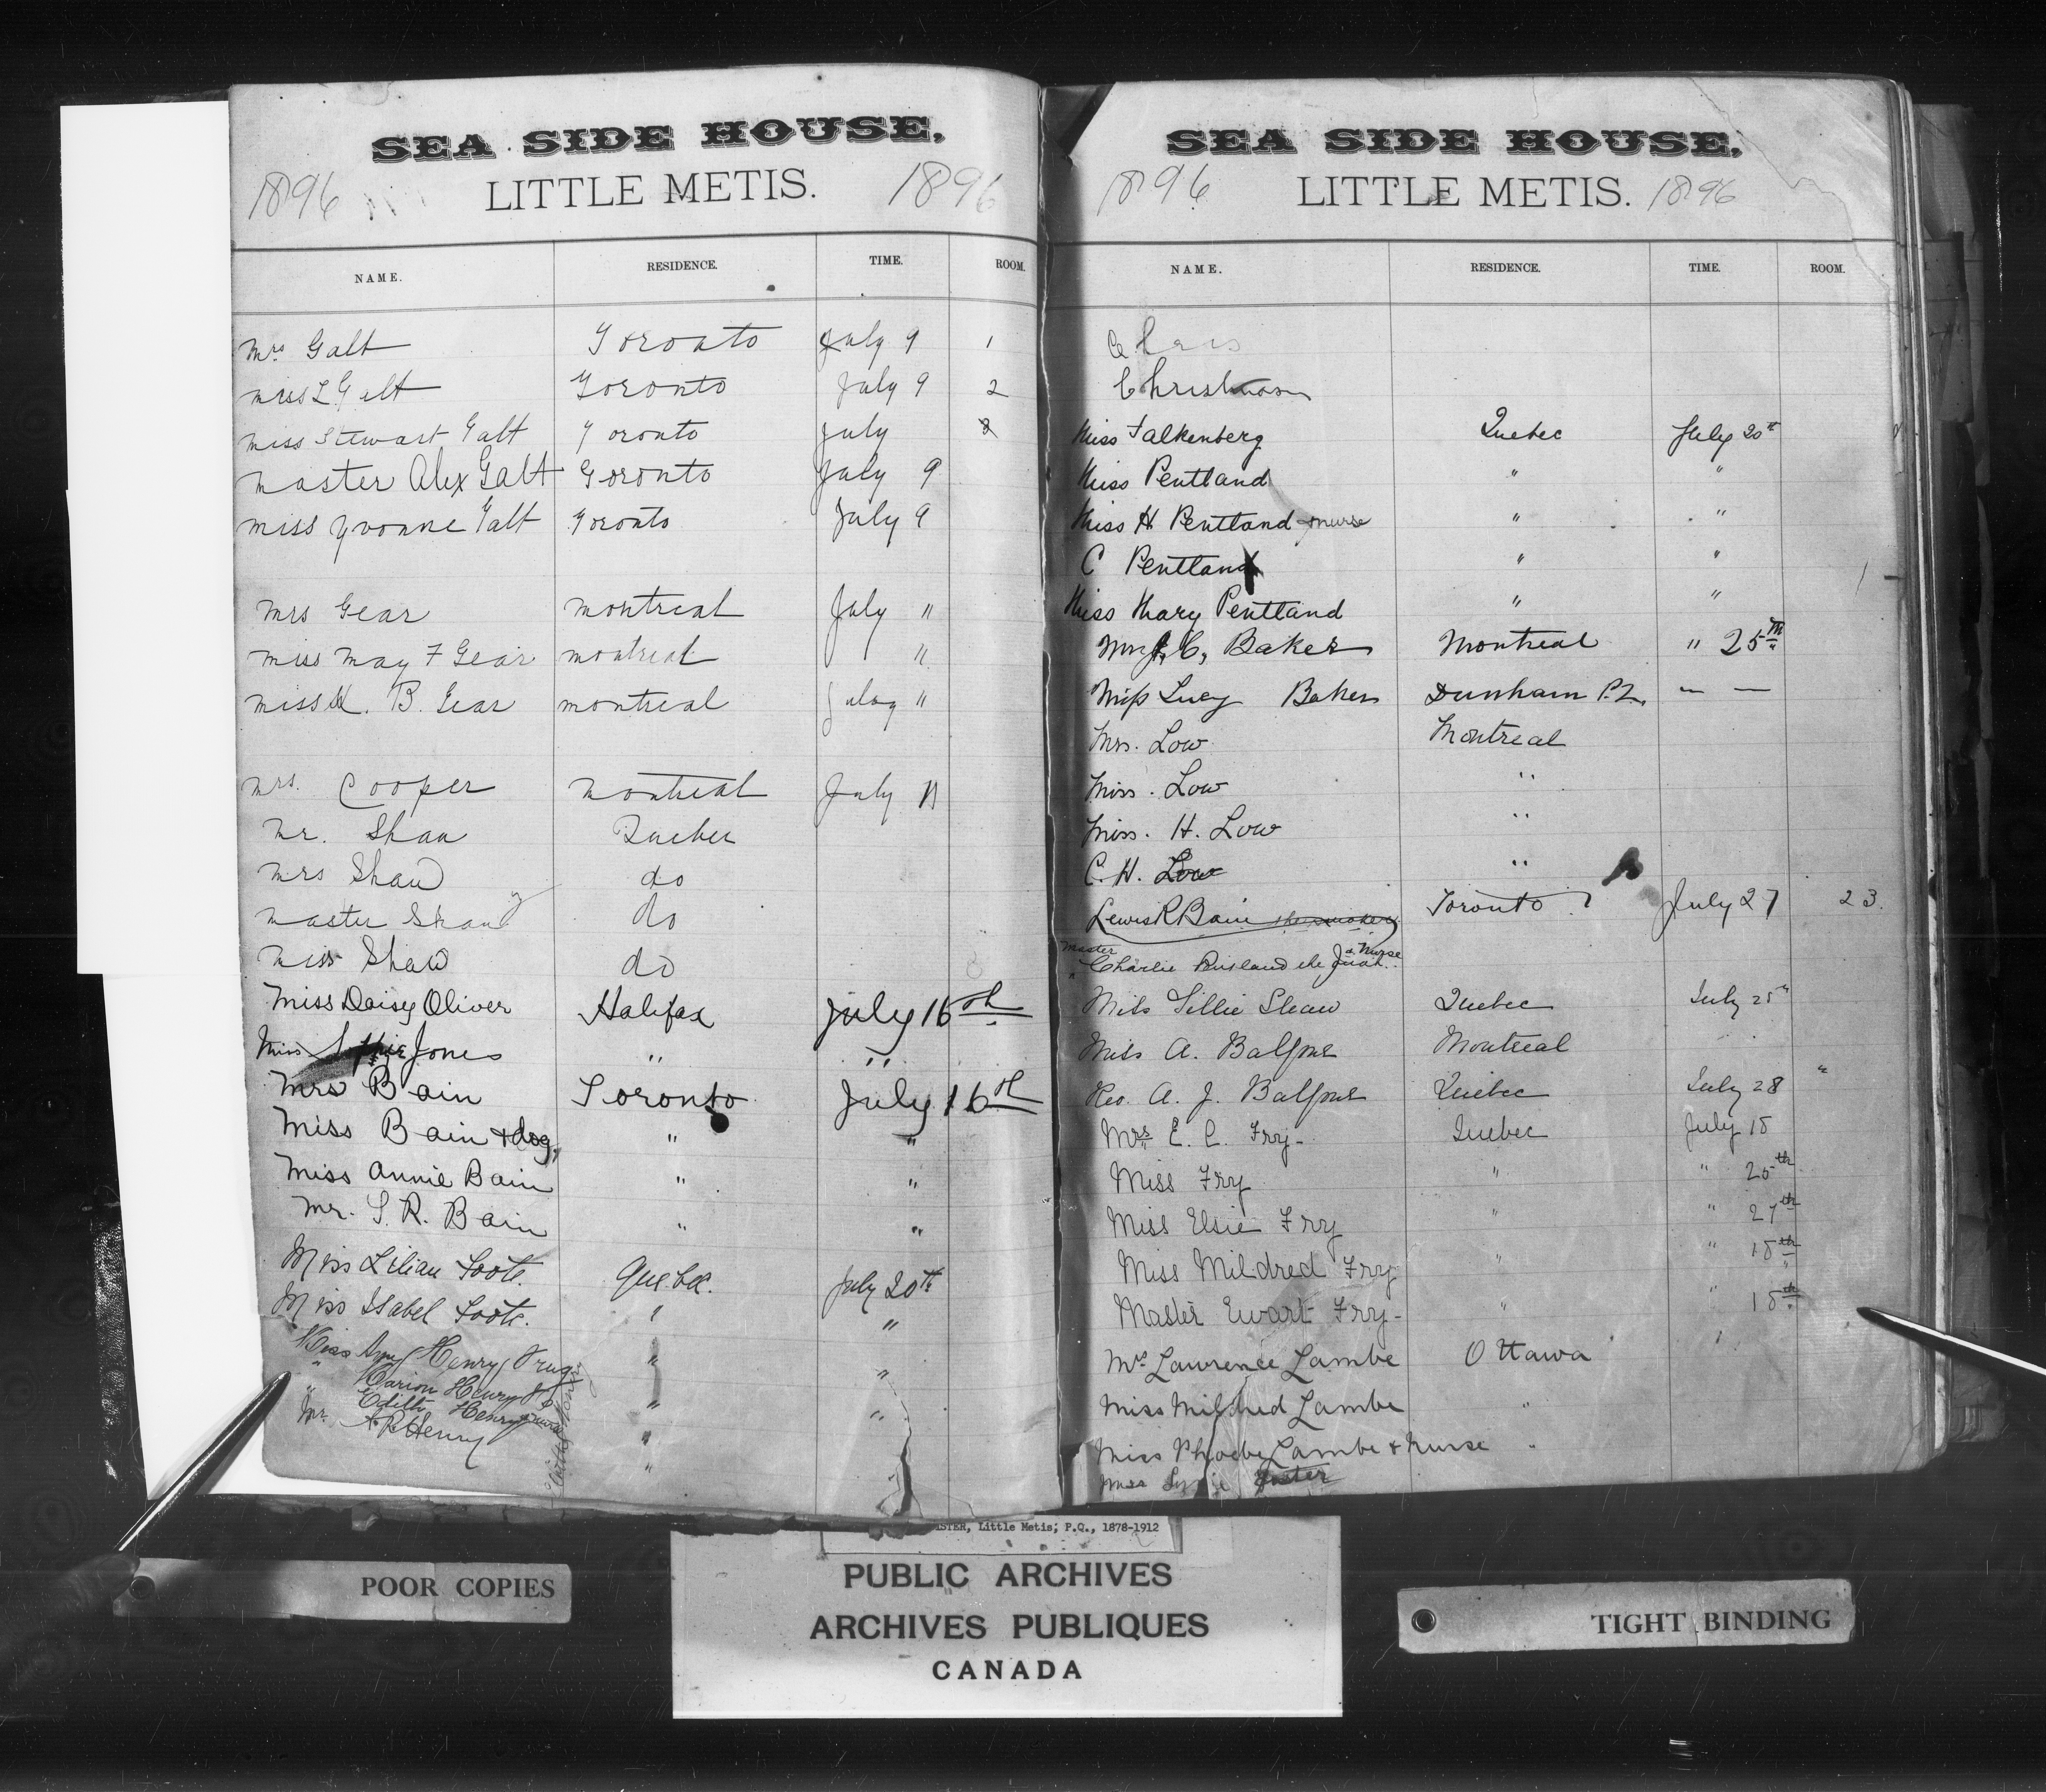 SEA SIDE HOUSE,
1896 LITTLE METIS. 1896
NAME. RESIDENCE. TIME. ROOM.
Mrs Galt Toronto July 9 1
miss L Galt Toronto July 9 2
miss Stewart Galt Toronto July
master Alex Galt Toronto July 9
miss Yvonne Galt Toronto July 9
mrs Gear montreal July "
miss may F Gear montreal "
miss B. Gear montreal July "
mrs. Cooper montreal July 11
Mr. Shaw Quebec
mrs Shaw do
master Shaw do
miss Shaw do
Miss Daisy Oliver Halifax July 16th
Miss Sophie Jones " "
Mrs Bain Toronto July 16th
Miss Bain + dog, " "
Miss Annie Bain " "
Mr. S. R. Bain " "
Miss Lilian Foote. Quebec. July 20th
Miss Isabel Foote. " "
Miss Amy Henry " "
" Marion Henry " "
" Edith Henry "
Mr. A. R. Henry "
SEA SIDE HOUSE,
1896 LITTLE METIS. 1896
NAME. RESIDENCE. TIME. ROOM.
Chas
Christmas
Miss Falkenberg Quebec July 20th
Miss Pentland " "
Miss H Pentland + nurse " "
C Pentland " "
Miss Mary Pentland " "
J. C. Baker Montreal " 25th
Miss Lucy Baker Dunham P.Q. — —
Mrs. Low Montreal
Miss. Low "
Miss. H. Low "
C. H. Low "
Lewis R Bain Toronto July 27 23.
Master Charlie & Nurse
Miss Lillie Shaw Quebec July 25"
Miss A. Balfour Montreal
Rev. A. J. Balfour Quebec July 28 "
Mrs E. C. Fry - Quebec July 18
Miss Fry " " 25th
Miss Elsie Fry " " 27th
Miss Mildred Fry " " 18th
Master Ewart Fry - " " 18th
Mrs Lawrence Lambe Ottawa
Miss Mildred Lambe "
Miss Phoebe Lambe + nurse "
Miss Foster
Little Metis; P.Q., 1878-1912
POOR COPIES
PUBLIC ARCHIVES
ARCHIVES PUBLIQUES
CANADA
TIGHT BINDING